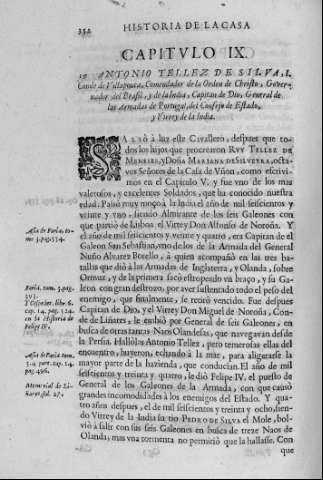 352
HISTORIA DE LA CASA
CAPITVLO IX.
19 ANTONIO TELLEZ DE SILVA, I.
Conde de Villapouca, Comendador de la Orden de Christo, Gover-
nador del Brasil, y de la India, Capitan de Dio, General de
las Armadas de Portugal, del Consejo de Estado,
y Virrey de la India.
SALIÒ à luz este Cavallero, despues que to-
dos los hijos que procrearon RVY TELLEZ DE
MENESES, y Doña MARIANA DE SILVEYRA, octa-
vos Señores de la Casa de Vñon, como escrivi-
mos en el Capitulo V. y fue vno de los mas
valerosos, y excelentes Soldados, que ha conocido nuestra
edad. Passò muy moço à la India el año de mil seiscientos y
veinte y vno, siendo Almirante de los seis Galeones con
que partiò de Lisboa el Virrey Don Alonso de Noroña. Y
el año de mil seiscientos y veinte y quatro, era Capitan de el
Galeon San Sebastian, vno de los de la Armada del General
Nuño Alvarez Botello, à quien acompañò en las tres ba-
tallas que diò à las Armadas de Inglaterra, y Olanda, sobre
Ormuz, y de la primera sacò estropeado vn braço, y su Ga-
leon con gran destroço, por aver sustentado todo el peso del
enemigo, que finalmente, se retirò vencido. Fue despues
Capitan de Dio, y el Virrey Don Miguel de Noroña, Con-
de de Liñares, le embiò por General de seis Galeones en
busca de otras tantas Naos Olandesas, que navegavan desde
la Persia. Hallòlas Antonio Tellez, pero temerosas ellas del
encuentro, huyeron, echando à la mar, para aligerarse la
mayor parte de la hazienda, que conducian. El año de mil
seiscientos y treinta y quatro, le diò Felipe IV. el puesto de
General de los Galeones de la Armada, con que causò
grandes incomodidades à los enemigos del Estado. Y qua-
tro años despues, el de mil seiscientos y treinta y ocho, sien-
do Virrey de la India su tio PEDRO DE SILVA el Mole, bol-
viò à salir con sus seis Galeones en busca de treze Naos de
Olanda, mas vna tormenta no permitiò que la hallasse. Con
que
Asia de Faria, to-
mo 3. pag. 354.
Faria, tom. 3. pag.
393.
Cespedes, lib. 6.
cap. 14. pag. 124.
en la Historia de
Felipe IV.
Asia de Faria tom.
3. 4. part. cap. 14.
pag. 496.
Memorial de Li-
ñares fol. 27.